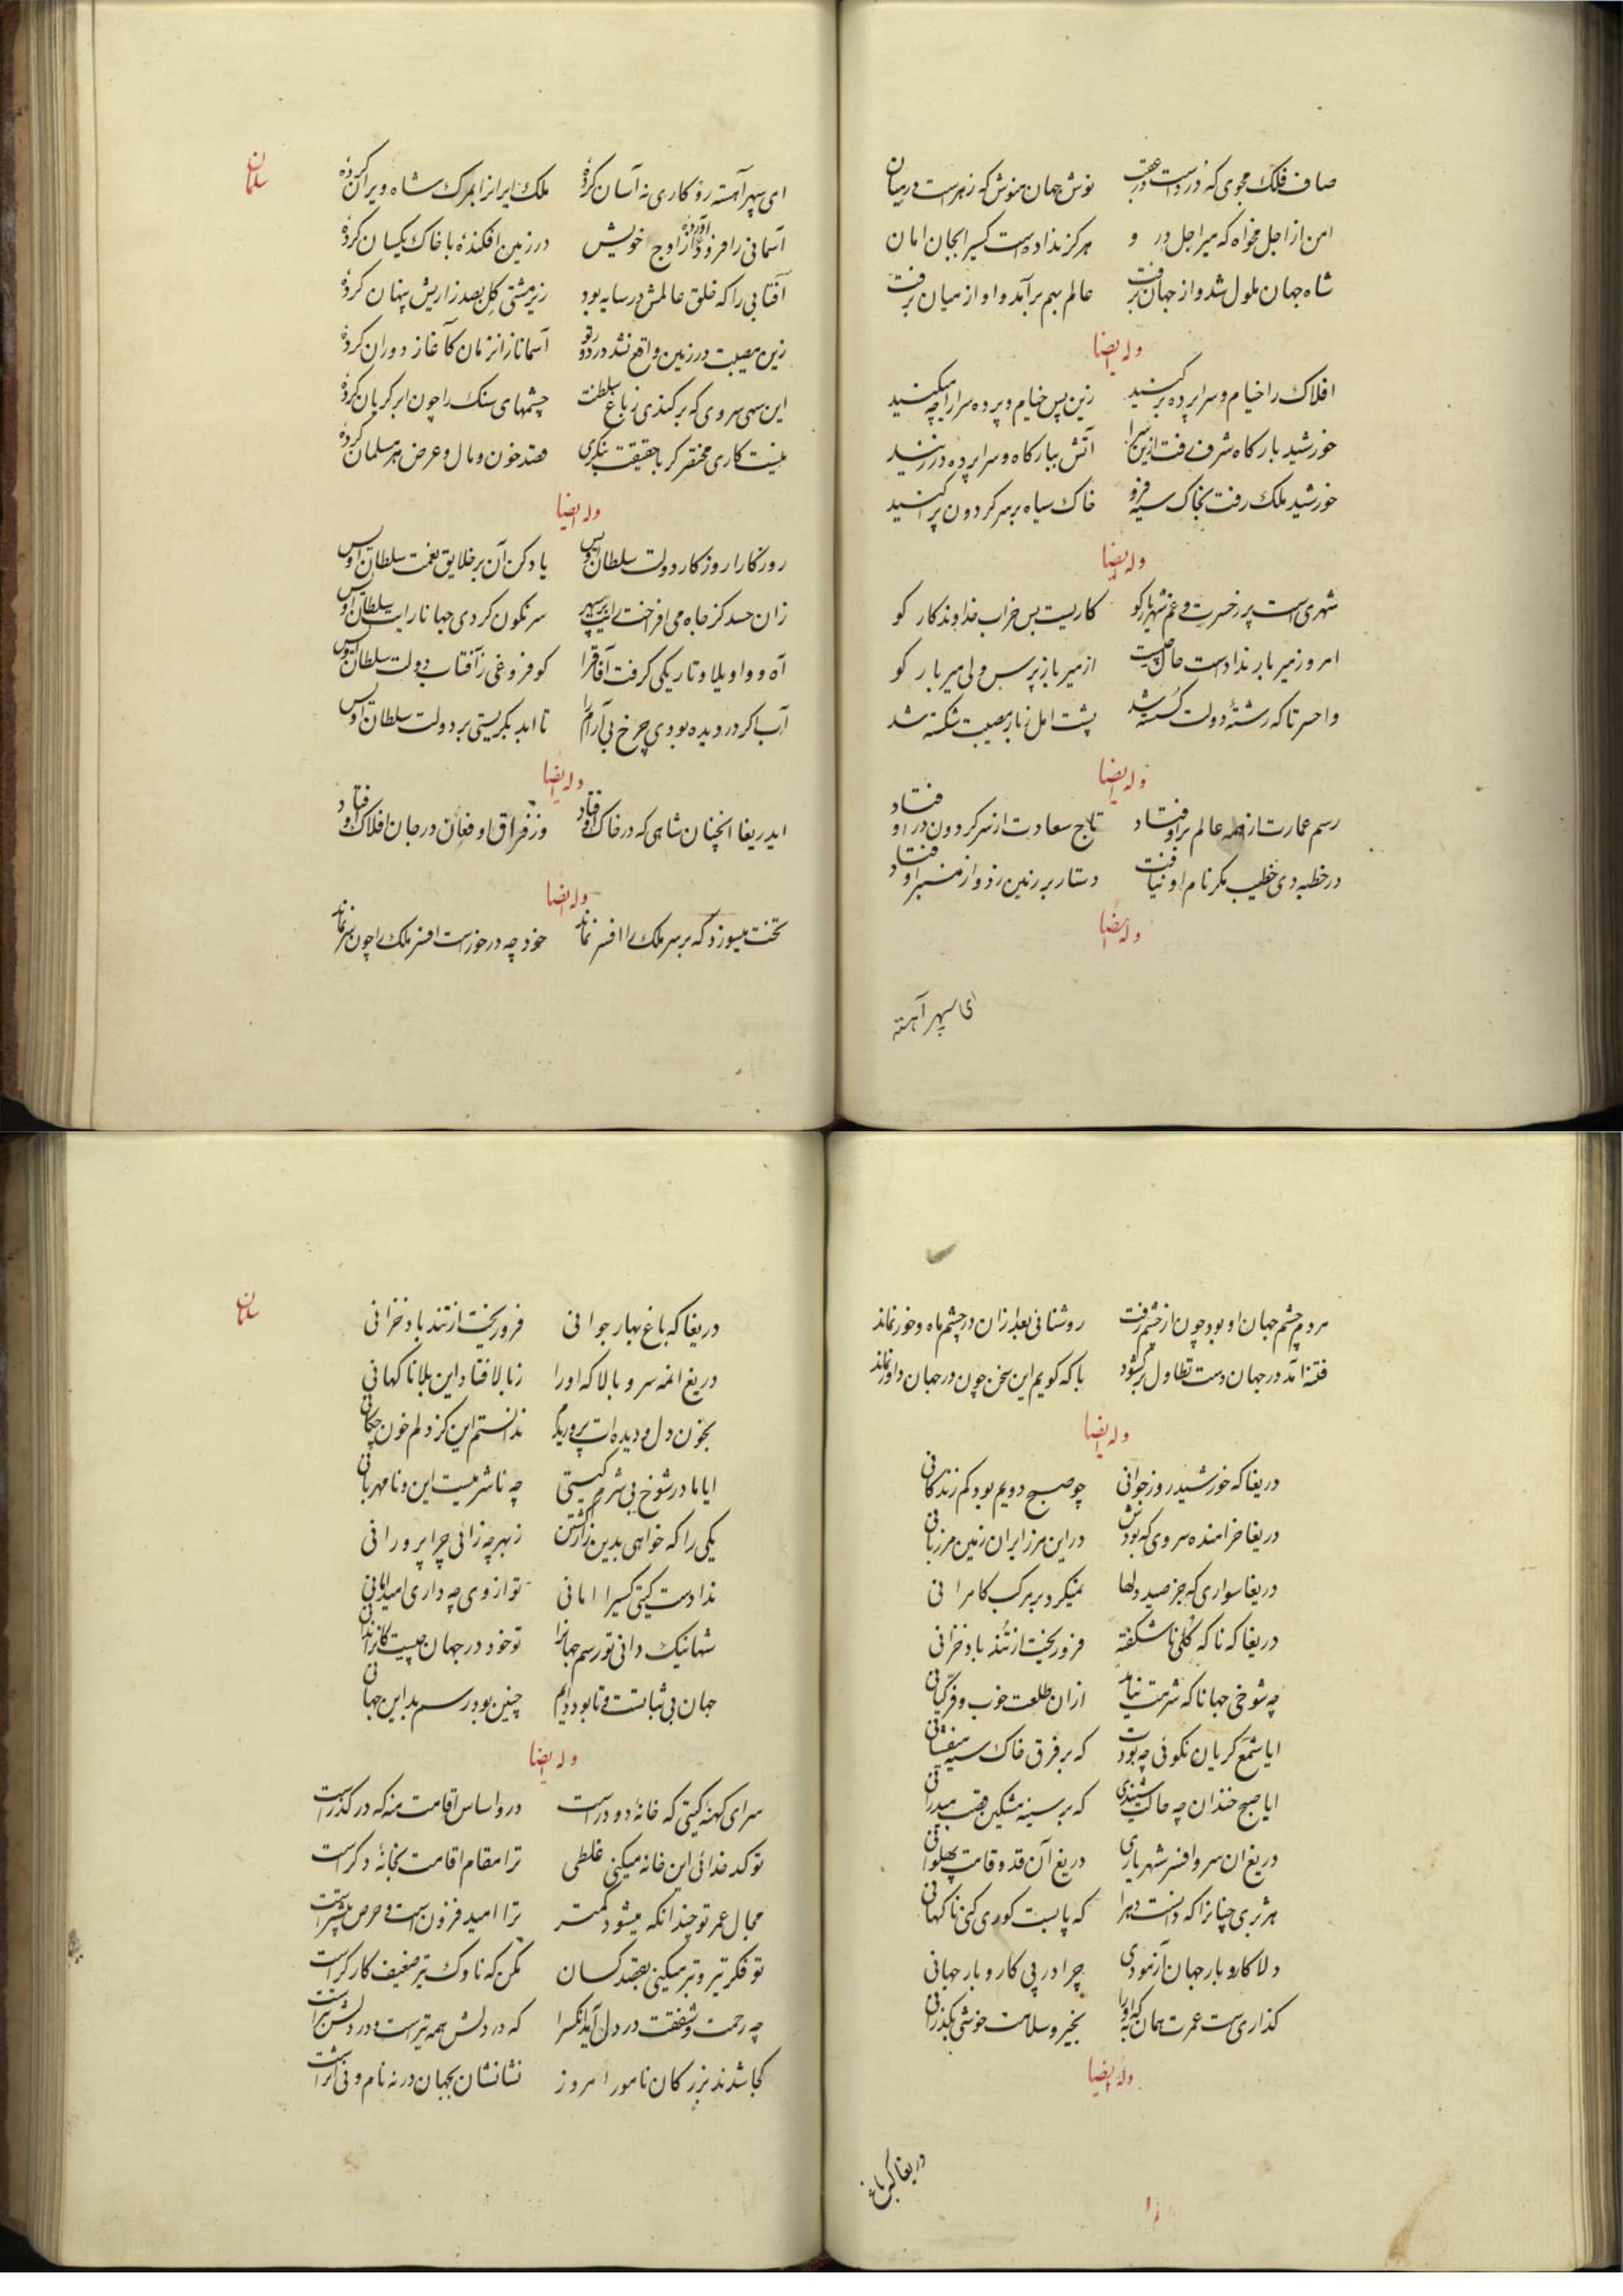 صاف فلک مجوی که دردست در عقب نوش جهان منوش که زهرست در میان
امن از اجل مخواه که میر اجل در و هرکز ندادست کسیرا بجان امان
شاه جهان ملول شد و از جهان برفت عالم بهم برآمد و او از میان برفت
وله ایضا
افلاک را خیام و سراپرده برکنید زین پس خیام و پرده سرا را چه میکنید
خورشید بارکاه شرف رفت ازین سرا آتش ببارکاه و سراپرده در زنید
خورشید ملک رفت بخاک سیه فرو خاک سیاه بر سر کردون پراکنید
وله ایضا
شهری است پر ز حسرت و غم شهریار کو کاریست بس خراب خداوندکار کو
امروز میر بار ندادست حال چیست از میر باز پرس ولی میر بار کو
واحسرتا که رشتهٔ دولت کسسته شد پشت امل ز بار مصیبت شکسته شد
وله ایضا
رسم عمارت از همه عالم بر اوفتاد تاج سعادت از سر کردون در اوفتاد
در خطبه دی خطیب مکر نام او نیافت دستار بر زمین زد و از منبر اوفتاد
وله ایضا
ای سپهر آهسته
سلمان
ای سپهر آهسته رو کاری نه آسان کردهٔ ملک ایرانرا بمرک شاه ویران کردهٔ
آسمانی را فرود آوردهٔ از اوج خویش در زمین افکندهٔ با خاک یکسان کردهٔ
آفتابی را که خلق عالمش در سایه بود زیر مشتی کل بصد زاریش پنهان کردهٔ
زین مصیبت در زمین واقع نشد در دور تو آسمانا زان زمان کآغاز دوران کردهٔ
این سهی سروی که برکندی ز باغ سلطنت چشمهای سنک را چون ابر کریان کردهٔ
نیست کاری مختصر کر با حقیقت بنکری قصد خون و مال و عرض هر مسلمان کردهٔ
وله ایضا
روزکارا روزکار دولت سلطان اویس یاد کن آن بر خلایق نعمت سلطان اویس
زان حسد کز جاه می افراخت رایت بر سپهر سرنکون کردی جهانا رایت سلطان اویس
آه و واویلا و تاریکی کرفت آفاق را کو فروغی ز آفتاب دولت سلطان اویس
آب اکر در دیده بودی چرخ بی آرام را تا ابد بکریستی بر دولت سلطان اویس
وله ایضا
ایدریغا انچنان شاهی که در خاک اوفتاد وز فراق او فغان در جان افلاک اوفتاد
وله ایضا
تخت میسوزد که بر سر ملک را افسر نماند خود چه در خورست افسر ملک را چون سر نماند
مردم چشم جهان او بود چون از چشم رفت روشنائی بعد ازان در چشم ماه و خور نماند
فتنه آمد در جهان دست تطاول برکشود با که کویم این سخن چون در جهان داور نماند
وله ایضا
دریغا که خورشید روز جوانی چو صبح دویم بود کم زندکانی
دریغا خرامنده سروی که بودش در این مرز ایران زمین مرزبانی
دریغا سواری که جز صید دلها نمیکرد بر مرکب کامرانی
دریغا که ناکه کلی ناشکفته فرو ریخت از تند باد خزانی
چه شوخی جهانا که شرمت نیامد ازان طلعت خوب و فر کیانی
ایا شمع کریان نکوئی چه بودت که بر فرق خاک سیه میفشانی
ایا صبح خندان چه حالت شنیدی که بر سینه مشکین قصب میدرانی
دریغ ان سر و افسر شهریاری دریغ آن قد و قامت پهلوانی
هژبری چنانرا که دانست دهرا که پابست کوری کنی ناکهانی
دلا کار و بار جهان آزمودی چرا در پی کار و بار جهانی
کذاری ست عمرت همان به که او را بخیر و سلامت خوشی بکذرانی
وله ایضا
دریغا که باغ
سلمان
دریغا که باغ بهار جوانی فرو ریخت از تند باد خزانی
دریغ انمه سرو بالا که او را ز بالا فتاد این بلا ناکهانی
بخون دل و دیده ات پروریدم ندانستم این کز دلم خون چکانی
ایا مادر شوخ بی شرم کیتی چه ناشرمیست این و نامهربانی
یکی را که خواهی بدین زار کشتن ز بهر چه زائی چرا پرورانی
ندادست کیتی کسیرا امانی تو از وی چه داری امید امانی
شها نیک دانی تو رسم جهانرا تو خود در جهان چیست کانرا ندانی
جهان بی ثباتست و تا بود دایم چنین بود رسم بد این جهانی
وله ایضا
سرای کهنه کیتی که خانهٔ دو درست درو اساس اقامت منه که در کذرست
تو کدخدائی این خانه میکنی غلطی ترا مقام اقامت بخانهٔ دکرست
مجال عمر تو چندانکه میشود کمتر ترا امید فزون است و حرص بیشترست
تو فکر تیر و تبر میکنی بقصد کسان مکن که ناوک تیر ضعیف کارکرست
چه رحمت و شفقت در دل آید انکسرا که در دلش همه تیرست و در دلش تبرست
کجا شدند بزرکان نامور امروز نشانشان بجهان در نه نام و نی اثرست